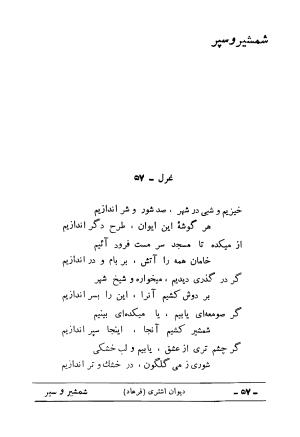 شمشیر و سپر
غزل - ۵۷
خیزیم و شبی در شهر ، صد شور و شر اندازیم
هر گوشهٔ این ایوان ، طرح دگر اندازیم
از میکده تا مسجد سر مست فرود آئیم
خامان همه را آتش ، بر بام و در اندازیم
گر در گذری دیدیم ، میخواره و شیخ شهر
بر دوش کشیم آنرا ، این را بسر اندازیم
گر صومعه‌ای یابیم ، یا میکده‌ای بینیم
شمشیر کشیم آنجا ، اینجا سپر اندازیم
گر چشم تری از عشق ، یابیم و لب خشکی
شوری ز می گلگون ، در خشک و تر اندازیم
شمشیر و سپر
دیوان اشتری (فرهاد)
- ۵۷ -